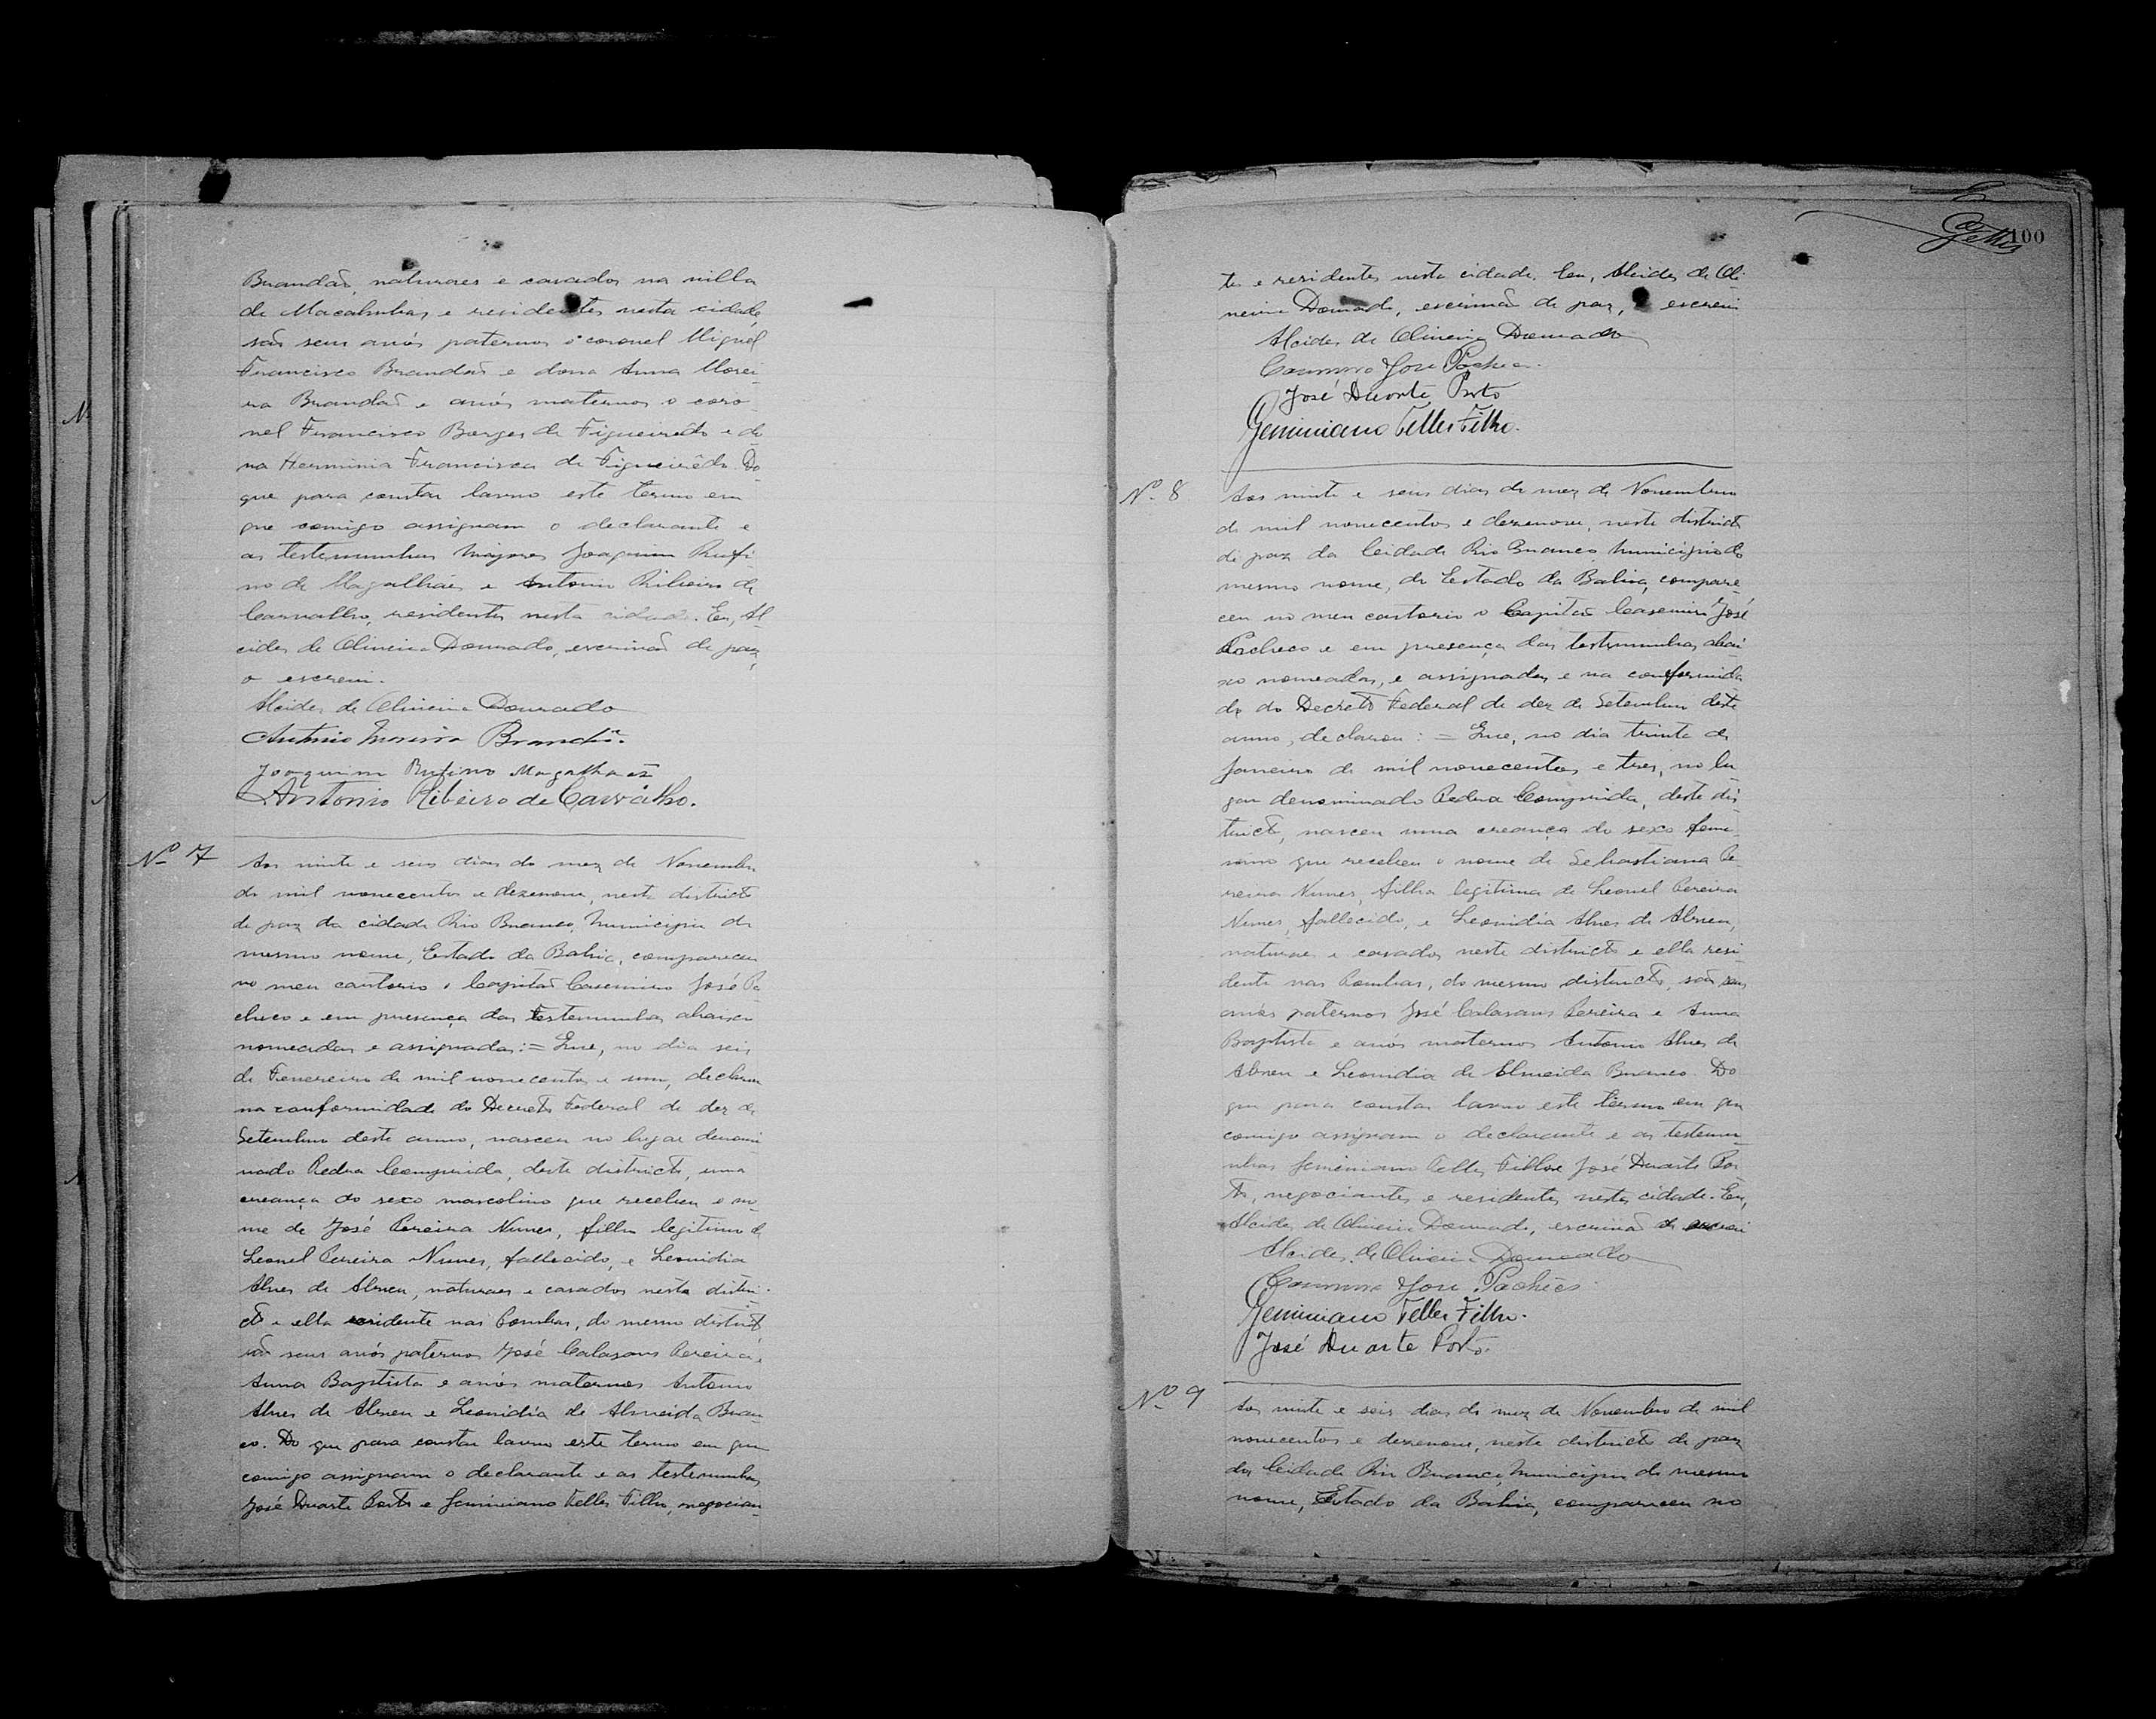 Brandão, naturaes e casados na villa
de Macahubas e residentes nesta cidade
são seus avós paternos o coronel Miguel
Francisco Brandão e dona Anna Morei-
ra Brandão e avós maternos o coro-
nel Francisco Borges de Figueirêdo e do
na Herminia Francisca de Figueirêdo. Do
que para constar lavro este termo em
que comigo assignam o declarante e
as testemunhas Majores Joaquim Rufi-
no de Magalhães e Antonio Ribeiro de
Carvalho, residentes nesta cidade. Eu, Al
cides de Oliveira Dourado, escrivão de paz,
o escrevi.
Alcides de Oliveira Dourado
Antonio Moreira Brandão.
Joaquim Rufino Magalhães
Antonio Ribeiro de Carvalho.
Nº 7
Aos vinte e seis dias do mez de Novembro
de mil novecentos e dezenove, neste districto
de paz da cidade Rio Branco, Municipio do
mesmo nome, Estado da Bahia, compareceu
no meu cartorio o Capitão Casemiro José Pa
checo e em presença das testemunhas abaixo
nomeadas e assignadas: = Que, no dia seis
de Fevereiro de mil novecentos e um, declarou
na conformidade do Decreto Federal de dez de
Setembro deste anno, nasceu no lugar denomi
nado Pedra Comprida, deste districto, uma
creança do sexo mascolino que recebeu o no-
me de José Pereira Nunes, filho legitimo de
Leonel Pereira Nunes, fallecido, e Leonidia
Alves de Abreu, naturaes e casados neste distri-
cto e ella residente nas Pombas, do mesmo districto
são seus avós paternos José Calasans Pereira e
Anna Baptista e avós maternos Antonio
Alves de Abreu e Leonidia de Almeida Bran
co. Do que para constar lavro este termo em que
comigo assignam o declarante e as testemunhas
José Duarte Porto e Geminiano Telles Filho, negocian-
100
tes e residentes nesta cidade. Eu, Alcides de Oli-
veira Dourado, escrivão de paz, o escrevi
Alcides de Oliveira Dourado
Casemiro José Pacheco.
José Duarte Porto
Geminiano Telles Filho.
Nº 8
Aos vinte e seis dias do mez de Novembro
de mil novecentos e dezenove, neste districto
de paz da Cidade Rio Branco Municipio do
mesmo nome, do Estado da Bahia, compare-
ceu no meu cartorio o Capitão Casemiro José
Pacheco e em presença das testemunhas abai
xo nomeadas, e assignadas e na conformida
de do Decreto Federal de dez de Setembro deste
anno, declarou: = Que, no dia trinta de
Janeiro de mil novecentos e tres, no lu
gar denominado Pedra Comprida, deste dis
tricto, nasceu uma creança do sexo femi-
nino que recebeu o nome de Sebastiana Pe-
reira Nunes, filha legitima de Leonel Pereira
Nunes, fallecido, e Leonidia Alves de Abreu,
naturaes e casados neste districto e ella resi-
dente nas Pombas, do mesmo districto, são seus
avós paternos José Calasans Pereira e Anna
Baptista e avós maternos Antonio Alves de
Abreu e Leonidia de Almeida Branco. Do
que para constar lavro este termo em que
comigo assignam o declarante e as testemu-
nhas Geminiano Telles Filho e José Duarte Por
to, negociantes e residentes nesta cidade. Eu,
Alcides de Oliveira Dourado, escrivão o escrevi
Alcides de Oliveira Dourado
Casemiro José Pacheco
Geminiano Telles Filho.
José Duarte Porto.
Nº 9
Aos vinte e seis dias do mez de Novembro de mil
novecentos e dezenove, neste districto de paz
da Cidade Rio Branco, Municipio do mesmo
nome, Estado da Bahia, compareceu no